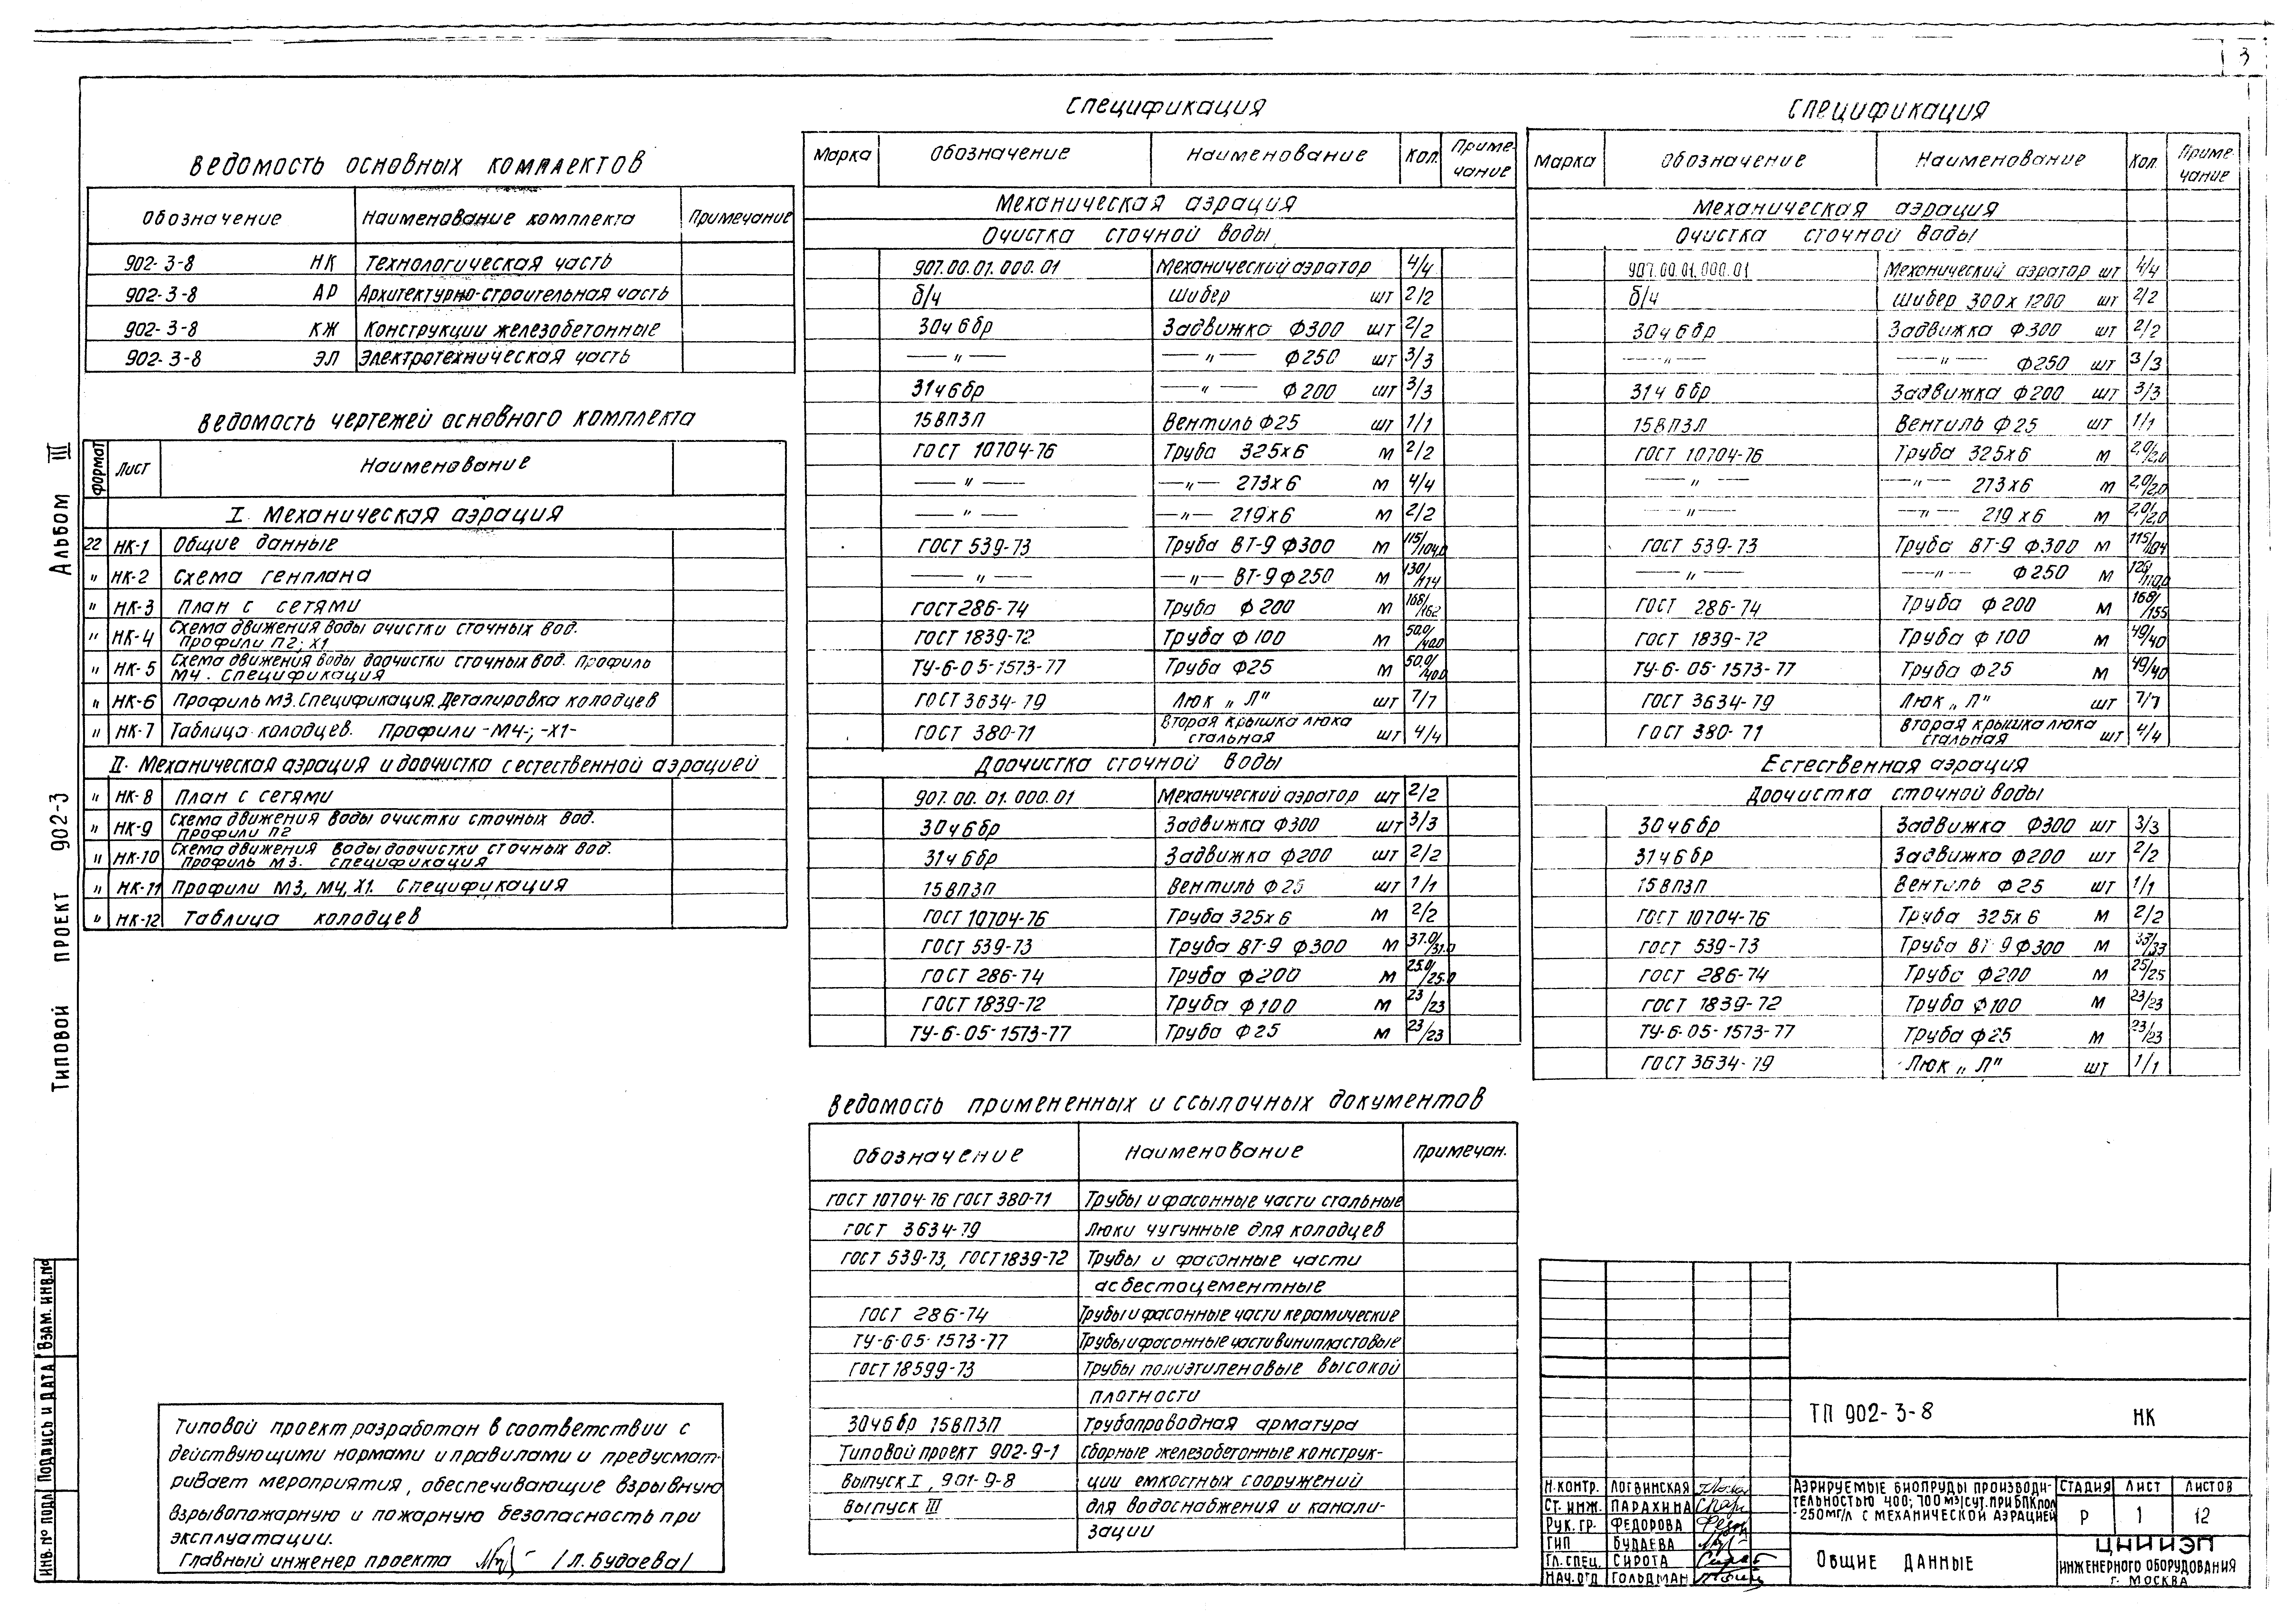 3
Типовой проект 902-3 Альбом III
Ведомость основных комплектов
Обозначение Наименование комплекта Примечание
902-3-8 НК Технологическая часть
902-3-8 АР Архитектурно-строительная часть
902-3-8 КЖ Конструкции железобетонные
902-3-8 ЭЛ Электротехническая часть
Ведомость чертежей основного комплекта
Формат Лист Наименование
I. Механическая аэрация
22 НК-1 Общие данные
" НК-2 Схема генплана
" НК-3 План с сетями
" НК-4 Схема движения воды очистки сточных вод.
Профили П2; Х1
" НК-5 Схема движения воды доочистки сточных вод. Профиль
М4. Спецификация
" НК-6 Профиль М3. Спецификация. Деталировка колодцев
" НК-7 Таблица колодцев. Профили -М4-; -Х1-
II. Механическая аэрация и доочистка с естественной аэрацией
" НК-8 План с сетями
" НК-9 Схема движения воды очистки сточных вод.
Профили П2
" НК-10 Схема движения воды доочистки сточных вод.
Профиль М3. Спецификация
" НК-11 Профили М3, М4, Х1. Спецификация
" НК-12 Таблица колодцев
Типовой проект разработан в соответствии с
действующими нормами и правилами и предусмат-
ривает мероприятия, обеспечивающие взрывную
взрывопожарную и пожарную безопасность при
эксплуатации.
Главный инженер проекта /Л. Будаева/
Спецификация
Марка Обозначение Наименование Кол. Приме-
чание
Механическая аэрация
Очистка сточной воды
907.00.01.000.01 Механический аэратор 4/4
б/ч Шибер шт 2/2
30ч6бр Задвижка Ф300 шт 2/2
—"— —"— Ф250 шт 3/3
31ч6бр —"— Ф200 шт 3/3
15ВП3П Вентиль Ф25 шт 1/1
ГОСТ 10704-76 Труба 325х6 м 2/2
—"— —"— 273х6 м 4/4
—"— —"— 219х6 м 2/2
ГОСТ 539-73 Труба ВТ-9 Ф300 м 115/104,0
—"— —"— ВТ-9 Ф250 м 130/114
ГОСТ 286-74 Труба Ф200 м 168/162
ГОСТ 1839-72 Труба Ф100 м 50.0/40.0
ТУ-6-05-1573-77 Труба Ф25 м 50.0/40.0
ГОСТ 3634-79 Люк „Л" шт 7/7
ГОСТ 380-71 Вторая крышка люка
стальная шт 4/4
Доочистка сточной воды
907.00.01.000.01 Механический аэратор шт 2/2
30ч6бр Задвижка Ф300 шт 3/3
31ч6бр Задвижка Ф200 шт 2/2
15ВП3П Вентиль Ф25 шт 1/1
ГОСТ 10704-76 Труба 325х6 м 2/2
ГОСТ 539-73 Труба ВТ-9 Ф300 м 37.0/31.0
ГОСТ 286-74 Труба Ф200 м 25.0/25.0
ГОСТ 1839-72 Труба Ф100 м 23/23
ТУ-6-05-1573-77 Труба Ф25 м 23/23
Ведомость примененных и ссылочных документов
Обозначение Наименование Примечан.
ГОСТ 10704-76 ГОСТ 380-71 Трубы и фасонные части стальные
ГОСТ 3634-79 Люки чугунные для колодцев
ГОСТ 539-73, ГОСТ 1839-72 Трубы и фасонные части
асбестоцементные
ГОСТ 286-74 Трубы и фасонные части керамические
ТУ-6-05-1573-77 Трубы и фасонные части винипластовые
ГОСТ 18599-73 Трубы полиэтиленовые высокой
плотности
30ч6бр 15ВП3П Трубопроводная арматура
Типовой проект 902-9-1 Сборные железобетонные конструк-
выпуск I, 901-9-8 ции емкостных сооружений
выпуск III для водоснабжения и канали-
зации
Спецификация
Марка Обозначение Наименование Кол. Приме-
чание
Механическая аэрация
Очистка сточной воды
907.00.01.000.01 Механический аэратор шт 4/4
б/ч Шибер 300х1200 шт 2/2
30ч6бр Задвижка Ф300 шт 2/2
—"— —"— Ф250 шт 3/3
31ч6бр Задвижка Ф200 шт 3/3
15ВП3П Вентиль Ф25 шт 1/1
ГОСТ 10704-76 Труба 325х6 м 2,0/2,0
—"— —"— 273х6 м 2,0/2,0
—"— —"— 219х6 м 2,0/2,0
ГОСТ 539-73 Труба ВТ-9 Ф300 м 115/104
—"— —"— Ф250 м
ГОСТ 286-74 Труба Ф200 м 168/155
ГОСТ 1839-72 Труба Ф100 м 49/40
ТУ-6-05-1573-77 Труба Ф25 м 49/40
ГОСТ 3634-79 Люк „Л" шт 7/7
ГОСТ 380-71 Вторая крышка люка
стальная шт 4/4
Естественная аэрация
Доочистка сточной воды
30ч6бр Задвижка Ф300 шт 3/3
31ч6бр Задвижка Ф200 шт 2/2
15ВП3П Вентиль Ф25 шт 1/1
ГОСТ 10704-76 Труба 325х6 м 2/2
ГОСТ 539-73 Труба ВТ-9 Ф300 м 33/33
ГОСТ 286-74 Труба Ф200 м 25/25
ГОСТ 1839-72 Труба Ф100 м 23/23
ТУ-6-05-1573-77 Труба Ф25 м 23/23
ГОСТ 3634-79 Люк „Л" шт 1/1
ТП 902-3-8 НК
Н.контр. Логвинская
Ст. инж. Парахина
Рук. гр. Федорова
ГИП Будаева
Гл. спец. Сирота
Нач. отд Гольдман
Аэрируемые биопруды производи-
тельностью 400; 700 м3/сут. при БПКпол
-250мг/л с механической аэрацией
Стадия Лист Листов
Р 1 12
Общие данные
ЦНИИЭП
инженерного оборудования
г. Москва
Инв. № подл Подпись и дата Взам. инв. №